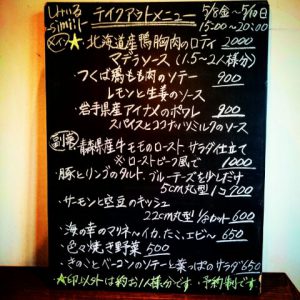 テイクアウトメニュー 5/8金〜5/10日
-simili- 15:00〜20:00
メイン ★北海道産鴨胸肉のロティ 2000
マデラソース (1.5〜2人様分)
つくば鶏もも肉のソテー 900
レモンと生姜のソース
岩手県産アイナメのポワレ 900
スパイスとココナッツミルクのソース
副菜 青森県産牛モモのロースト サラダ仕立て
※ローストビーフ風で 1000
・豚とリンゴのタルト ブルーチーズを少しだけ
5cm丸型 1コ 700
・サーモンと空豆のキッシュ
22cm丸型 1/8カット 600
・海の幸のマリネ〜イカ、たこ、エビ〜 650
・色々焼き野菜 500
・きのことベーコンのソテーと葉っぱのサラダ 650
★印以外は約お1人様分です・予約制です